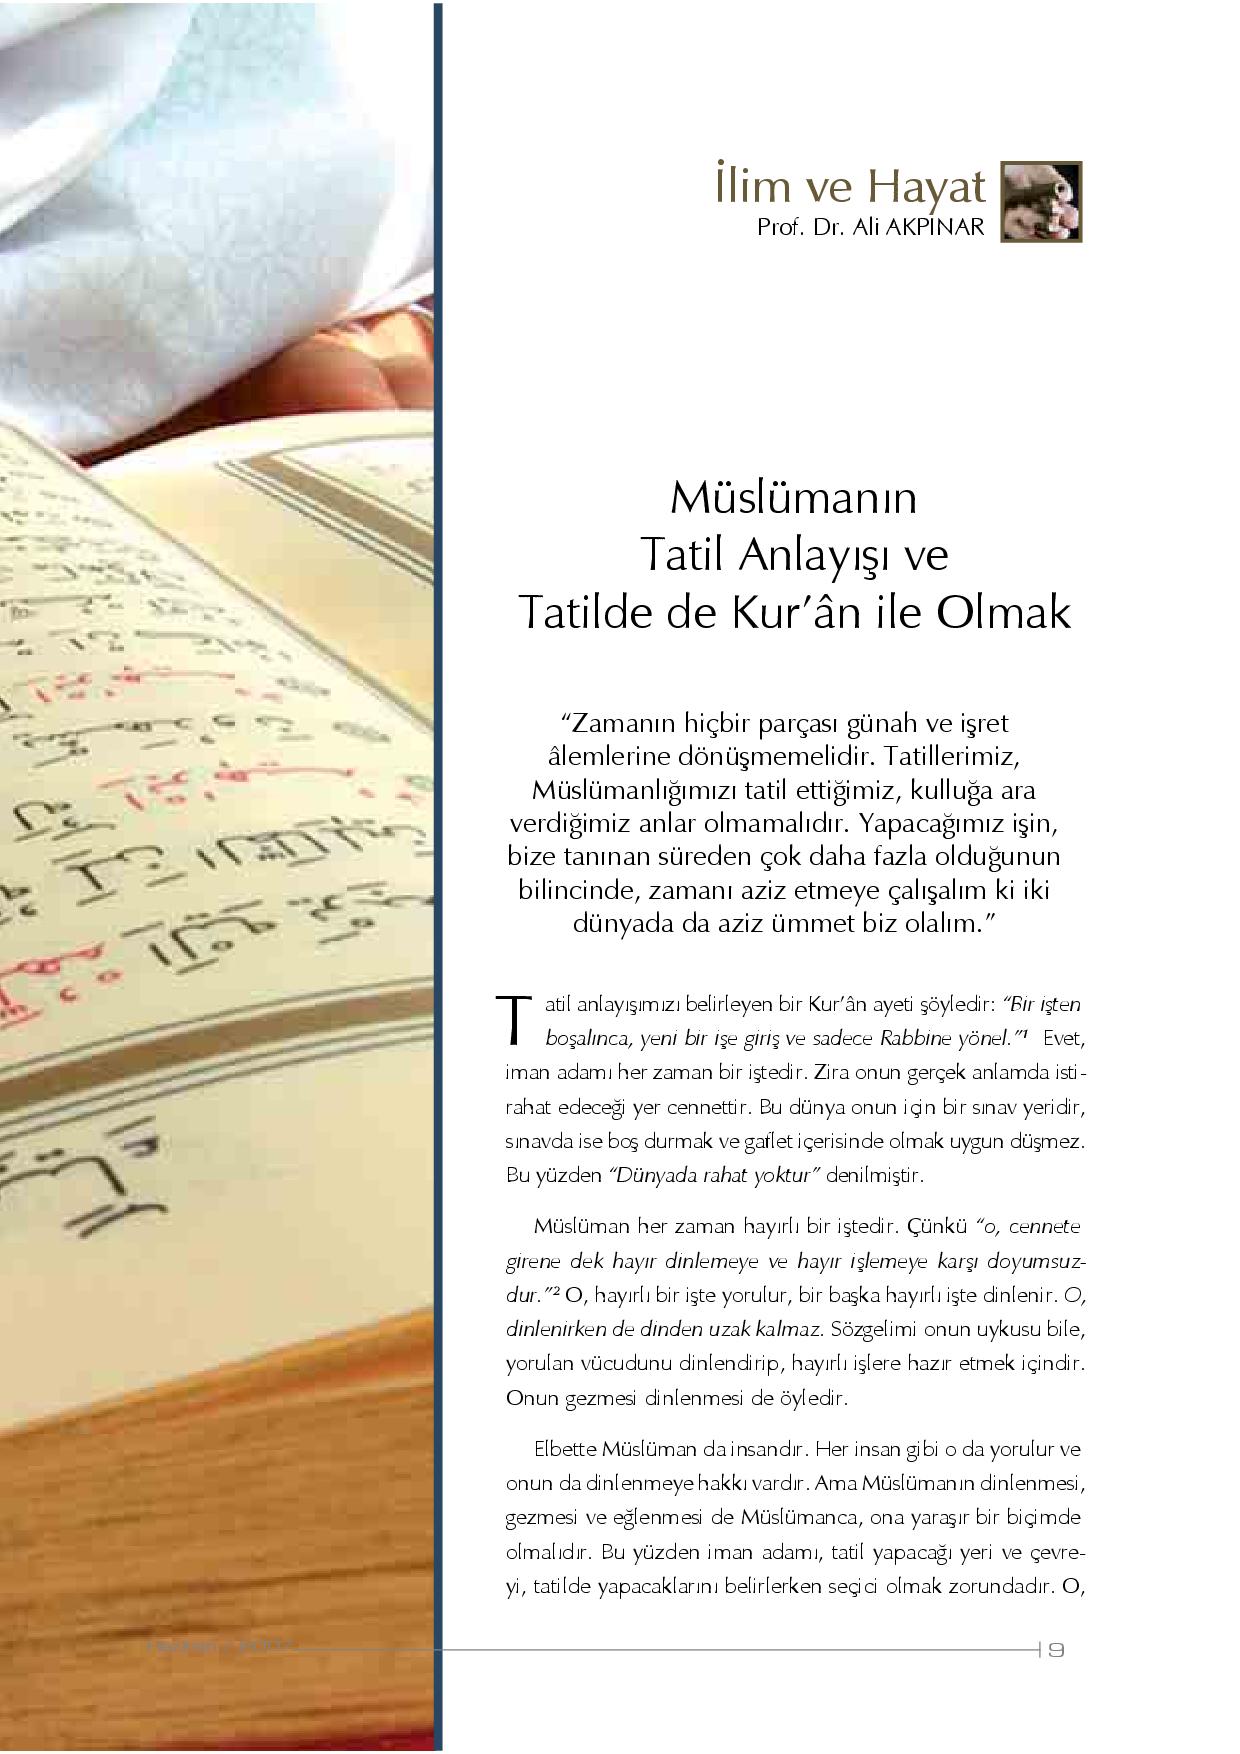 İlim ve Hayat
Prof. Dr. Ali AKPINAR
Müslümanın
Tatil Anlayışı ve
Tatilde de Kur’ân ile Olmak
“Zamanın hiçbir parçası günah ve işret
âlemlerine dönüşmemelidir. Tatillerimiz,
Müslümanlığımızı tatil ettiğimiz, kulluğa ara
verdiğimiz anlar olmamalıdır. Yapacağımız işin,
bize tanınan süreden çok daha fazla olduğunun
bilincinde, zamanı aziz etmeye çalışalım ki iki
dünyada da aziz ümmet biz olalım.”
Tatil anlayışımızı belirleyen bir Kur’ân ayeti şöyledir: “Bir işten
boşalınca, yeni bir işe giriş ve sadece Rabbine yönel.”¹ Evet,
iman adamı her zaman bir iştedir. Zira onun gerçek anlamda isti-
rahat edeceği yer cennettir. Bu dünya onun için bir sınav yeridir,
sınavda ise boş durmak ve gaflet içerisinde olmak uygun düşmez.
Bu yüzden “Dünyada rahat yoktur” denilmiştir.
Müslüman her zaman hayırlı bir iştedir. Çünkü “o, cennete
girene dek hayır dinlemeye ve hayır işlemeye karşı doyumsuz-
dur.”² O, hayırlı bir işte yorulur, bir başka hayırlı işte dinlenir. O,
dinlenirken de dinden uzak kalmaz. Sözgelimi onun uykusu bile,
yorulan vücudunu dinlendirip, hayırlı işlere hazır etmek içindir.
Onun gezmesi dinlenmesi de öyledir.
Elbette Müslüman da insandır. Her insan gibi o da yorulur ve
onun da dinlenmeye hakkı vardır. Ama Müslümanın dinlenmesi,
gezmesi ve eğlenmesi de Müslümanca, ona yaraşır bir biçimde
olmalıdır. Bu yüzden iman adamı, tatil yapacağı yeri ve çevre-
yi, tatilde yapacaklarını belirlerken seçici olmak zorundadır. O,
9